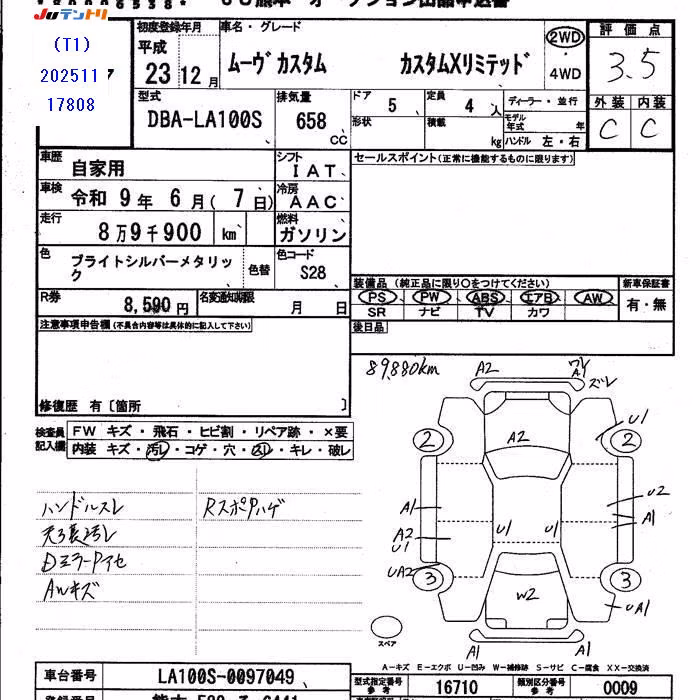 Juテントリ
(T1)
202511
17808
初度登録年月
平成
23年12月
車名・グレード
ムーヴカスタム カスタムXリミテッド
2WD
・
4WD
評価点
3.5
外装 内装
C C
型式
DBA-LA100S
排気量
658
CC
ドア
5
形状
定員
4 人
積載
kg
ディーラー・並行
モデル年式 年
ハンドル 左・右
車歴
自家用
シフト
IAT
車検
令和 9年 6月( 7日)
冷房
AAC
走行
8万9千900 km
燃料
ガソリン
色
ブライトシルバーメタリック
色替
色コード
S28
R券
8,590円
名変通知期限
月 日
セールスポイント(正常に機能するものに限ります)
装備品(純正品に限り○をつけてください)
PS PW ABS エアB AW
SR ナビ TV カワ
新車保証書
有・無
後日品
注意事項申告欄(不具合内容等は具体的に記入して下さい)
修復歴 有〔箇所 〕
検査員記入欄
FW キズ・飛石・ヒビ割・リペア跡・×要
内装 キズ・汚レ・コゲ・穴・スレ・キレ・破レ
ハンドルスレ
天張汚レ
DミラーPアセ
AWキズ
RスポPハゲ
89,880km
A2
ワレ
A1
ズレ
U1
2
2
A2
A1
A2
U1
UA2
U1
U1
U2
A1
3
3
W2
UA1
A1
A1
スペア
A-キズ E-エクボ U-凹み W-補修跡 S-サビ C-腐食 XX-交換済
車台番号
LA100S-0097049
型式指定番号
参考
16710
類別区分番号
参考
0009